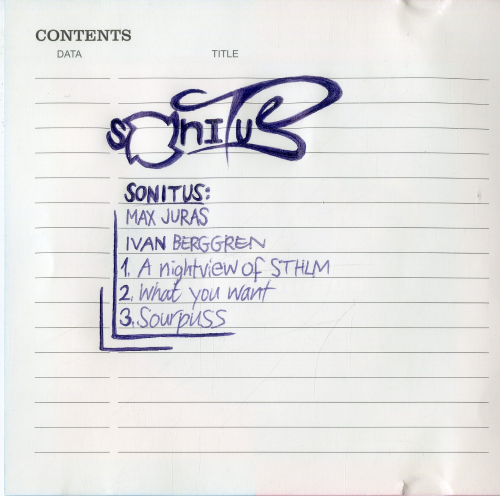 CONTENTS
DATA TITLE
SONITUS
SONITUS:
MAX JURAS
IVAN BERGGREN
1. A nightview of STHLM
2. What you want
3. Sourpuss